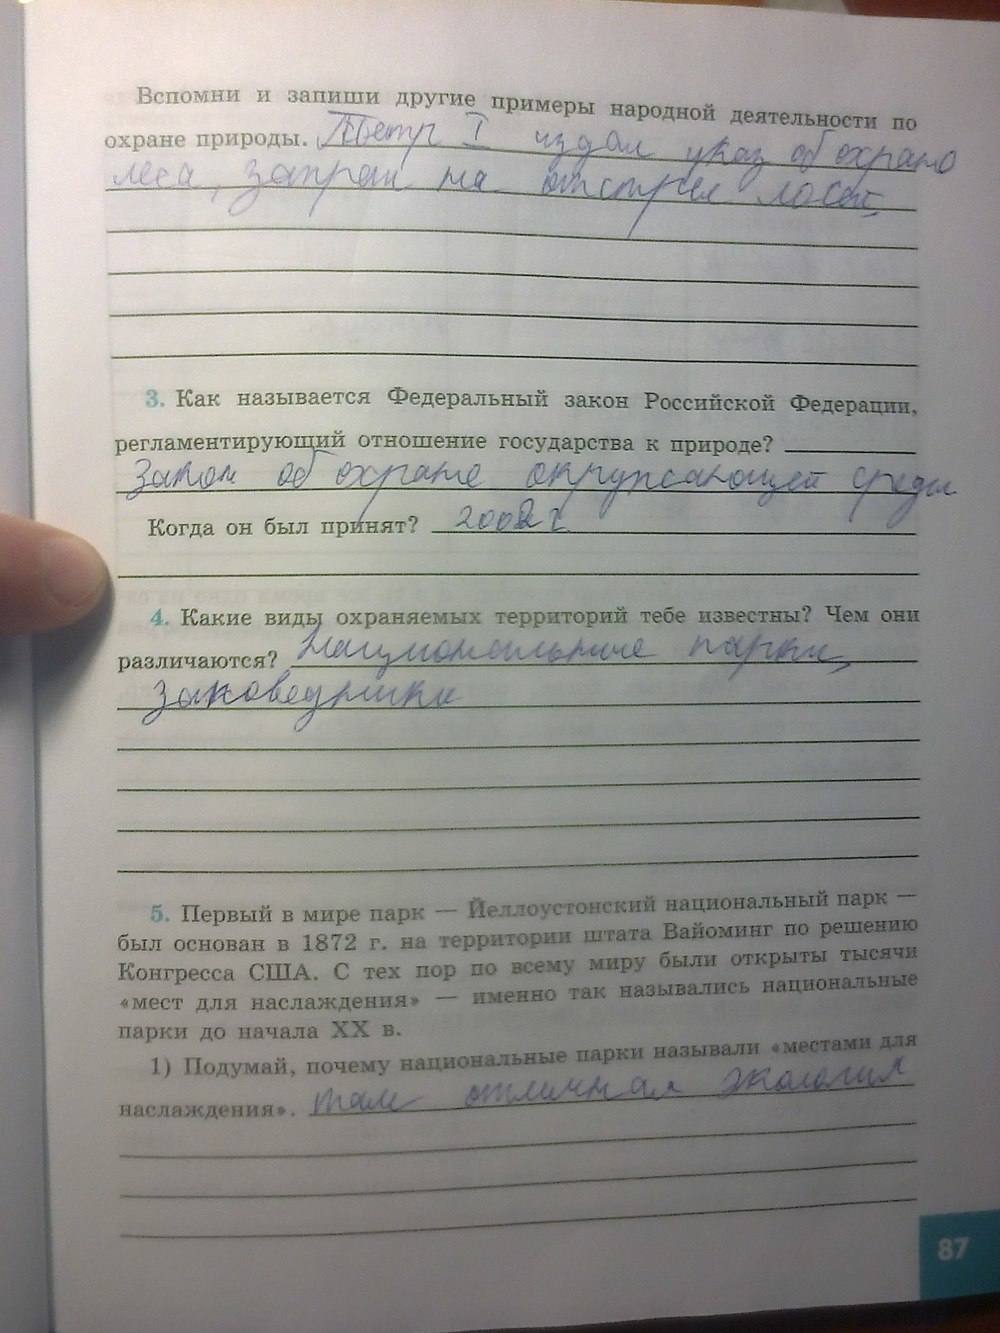 Вспомни и запиши другие примеры народной деятельности по
охране природы. Петр I издал указ об охрано
леса, запрет на отстрел лосей,
3. Как называется Федеральный закон Российской Федерации,
регламентирующий отношение государства к природе?
Закон об охране окружсающей среды
Когда он был принят? 2002 г.
4. Какие виды охраняемых территорий тебе известны? Чем они
различаются? Национальные парки,
заповедники
5. Первый в мире парк — Йеллоустонский национальный парк —
был основан в 1872 г. на территории штата Вайоминг по решению
Конгресса США. С тех пор по всему миру были открыты тысячи
«мест для наслаждения» — именно так назывались национальные
парки до начала XX в.
1) Подумай, почему национальные парки называли «местами для
наслаждения». там отличная экология
87